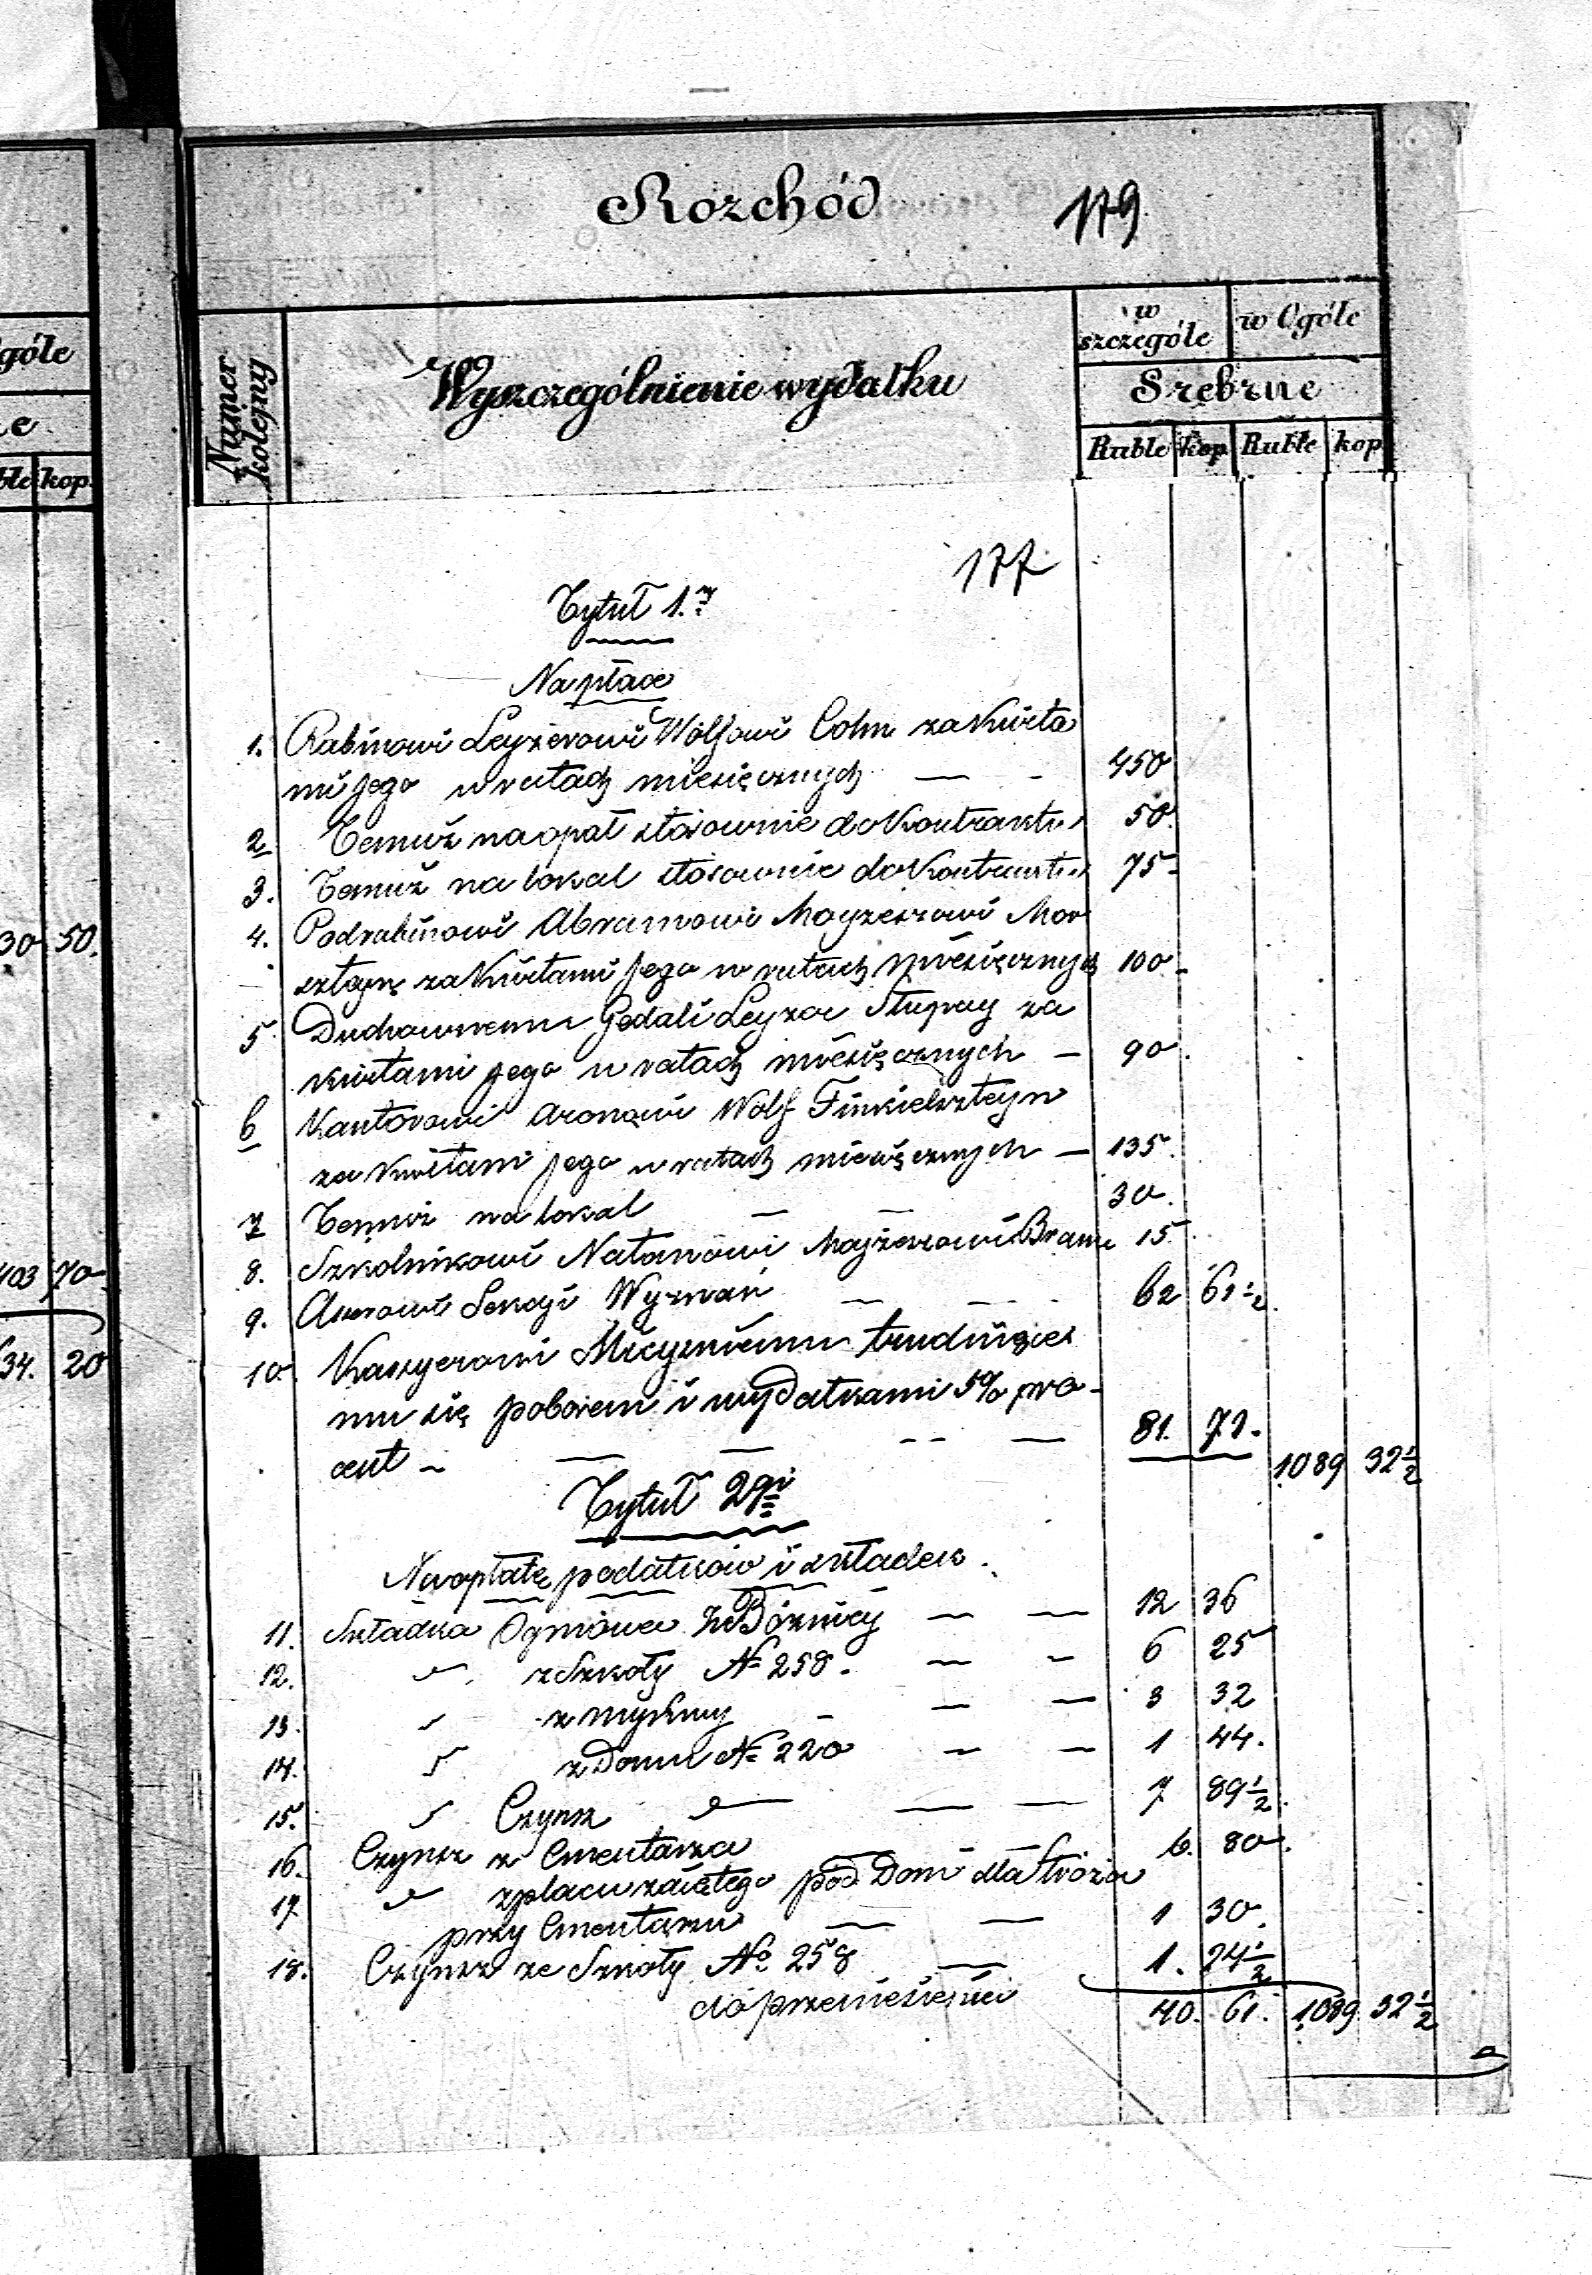 Rozchód 179
Numer kolejny
Wyszczególnienie wydatku
w szczególe
w Ogóle
Srebrne
Ruble kop Ruble kop
góle
e
ble kop.
177
Tytuł 1.y
Na płace
1. Rabinowi Leyzerowi Wolfowi Cohn za kwita
mi jego w ratach miesięcznych — - 450
2 Temuż na opał stósownie do kontraktu 50.
3. Temuż na lokal stósownie do kontraktu 75-
4. Podrabinowi Abramowi Moyzeszowi Mor
sztayn za kwitami jego w ratach miesięcznych 100-
5 Duchownemu Gedali Leyza Słupay za
kwitami jego w ratach miesięcznych — 90.
6 Kantorowi Aronowi Wolf Finkielszteyn
za kwitami jego w ratach miesięcznych — 135.
7 Temuż na lokal — — 30.
8. Szkolnikowi Natanowi Mojżeszowi Bram 15.
9. Wyznań — — 62 61 1/2
10. Kassyerowi Mieyskiemu trudniące
mu się poborem i wydatkami 5% pro-
cent - — — -- — 81. 71.
1089 32 1/2
Tytuł 2gi
Na opłatę podatków i składek.
11. Składka Ogniowa z Bóznicy — — 12 36
12. " z Szkoły № 258. — - 6 25
13. " z mykwy - — — 3 32
14. " z Domu № 220 — — 1 44.
15. " Czynsz " — — 7 89 1/2
16. Czynsz z Cmentarza — — 6. 80.
17 " z placu zaiętego pod Dom dla Stróża
przy Cmentarzu — — 1 30.
18. Czynsz ze Szkoły № 258 — 1. 24 1/2
do przeniesienia 40. 61. 1089 32 1/2
30 50.
403 70
34. 20